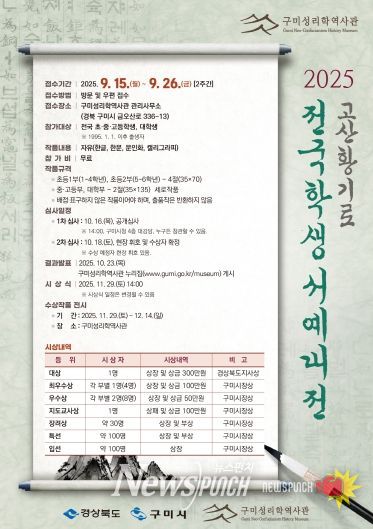 구미성리학역사관
Gumi Neo-Confucianism History Museum
2025
고산황기로
전국학생서예대전
접수기간 | 2025. 9. 15.(월) ~ 9. 26.(금) [2주간]
접수방법 | 방문 및 우편 접수
접수장소 | 구미성리학역사관 관리사무소
(경북 구미시 금오산로 336-13)
참가대상 | 전국 초·중·고등학생, 대학생
※ 1995. 1. 1. 이후 출생자
작품내용 | 자유(한글, 한문, 문인화, 캘리그라피)
참 가 비 | 무료
작품규격
◦ 초등1부(1~4학년), 초등2부(5~6학년) - 4절(35×70)
◦ 중·고등부, 대학부 - 2절(35×135) 세로작품
◦ 배접·표구하지 않은 작품이어야 하며, 출품작은 반환하지 않음
심사일정
◦ 1차 심사 : 10. 16.(목), 공개심사
※ 14:00, 구미시청 4층 대강당, 누구든 참관할 수 있음.
◦ 2차 심사 : 10. 18.(토), 현장 휘호 및 수상자 확정
※ 수상 예정자 현장 휘호 있음.
결과발표 | 2025. 10. 23.(목)
구미성리학역사관 누리집(www.gumi.go.kr/museum) 게시
시 상 식 | 2025. 11. 29.(토) 14:00
※ 시상식 일정은 변경될 수 있음
수상작품 전시
◦ 기 간 : 2025. 11. 29.(토) ~ 12. 14.(일)
◦ 장 소 : 구미성리학역사관
시상내역
등 위 시 상 자 시상내역 비 고
대상 1명 상장 및 상금 300만원 경상북도지사상
최우수상 각 부별 1명(4명) 상장 및 상금 100만원 구미시장상
우수상 각 부별 2명(8명) 상장 및 상금 50만원 구미시장상
지도교사상 1명 상패 및 상금 100만원 구미시장상
장려상 약 30명 상장 및 부상 구미시장상
특선 약 100명 상장 및 부상 구미시장상
입선 약 100명 상장 구미시장상
뉴스펀치
NewsPunch
NEWSPUNCH
경상북도
구미시
구미성리학역사관
Gumi Neo-Confucianism History Museum